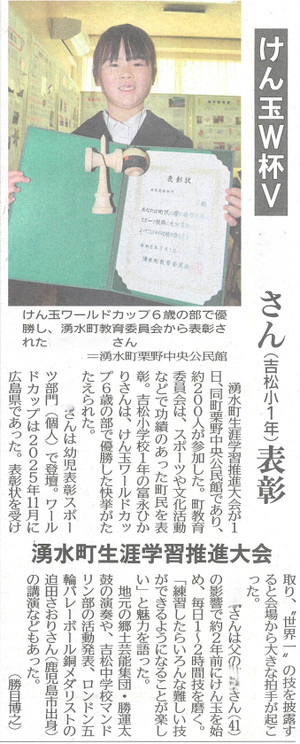 けん玉W杯V
さん(吉松小1年)表彰
表彰状
湧水町教育委員会
けん玉ワールドカップ6歳の部で優
勝し、湧水町教育委員会から表彰さ
れた さん
＝湧水町栗野中央公民館
湧水町生涯学習推進大会が1
日、同町栗野中央公民館であり、
約200人が参加した。町教育
委員会は、スポーツや文化活動
などで功績のあった町民を表
彰。吉松小学校1年の冨永ひか
りさんは、けん玉ワールドカッ
プ6歳の部で優勝した快挙がた
たえられた。
さんは幼児表彰スポー
ツ部門(個人)で登壇。ワール
ドカップは2025年11月に
広島県であった。表彰状を受け
湧水町生涯学習推進大会
取り、〝世界一〟の技を披露す
ると会場から大きな拍手が起こ
った。
さんは父の さん(41)
の影響で約2年前にけん玉を始
め、毎日1〜2時間技を磨く。
「練習したらいろんな難しい技
ができるようになることが楽し
い」と魅力を語った。
地元の郷土芸能集団・勝運太
鼓の演奏や、吉松中学校マンド
リン部の活動発表、ロンドン五
輪バレーボール銅メダリストの
迫田さおりさん(鹿児島市出身)
の講演などもあった。
(勝目博之)